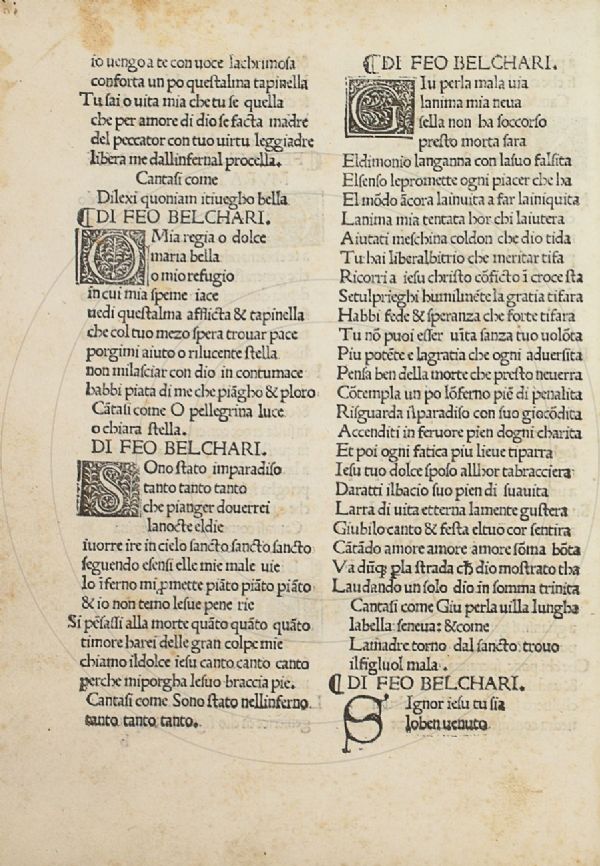 io uengo a te con uoce lachrimosa
conforta un po questalma tapinella
Tu sai o uita mia che tu se quella
che per amore di dio se facta madre
del peccator con tuo uirtu leggiadre
libera me dallinfernal procella.
Cantasi come
Dilexi quoniam itiuegho bella
¶ DI FEO BELCHARI.
O Mia regia o dolce
maria bella
o mio refugio
in cui mia speme iace
uedi questalma afflicta & tapinella
che col tuo mezo spera trouar pace
porgimi aiuto o rilucente stella
non milasciar con dio in contumace
habbi piata di me che piãgho & ploro
Cãtasi come O pellegrina luce
o chiara stella.
DI FEO BELCHARI.
S Ono stato imparadiso
tanto tanto tanto
che pianger douerrei
lanocte eldie
iuorre ire in cielo sancto sancto sancto
seguendo esensi elle mie male uie
lo ĩferno mi pmette piãto piãto piãto
& io non temo lesue pene rie
Si pẽsassi alla morte quãto quãto quãto
timore harei delle gran colpe mie
chiamo ildolce iesu canto canto canto
perche miporgha lesuo braccia pie.
Cantasi come Sono stato nellinferno
tanto tanto tanto.
¶ DI FEO BELCHARI.
G Iu perla mala uia
lanima mia neua
sella non ha soccorso
presto morta sara
Eldimonio langanna con lasuo falsita
Elsenso lepromette ogni piacer che ha
El mõdo ãcora lainuita a far lainiquita
Lanima mia tentata hor chi laiutera
Aiutati meschina coldon che dio tida
Tu hai liberalbitrio che meritar tifa
Ricorri a iesu christo cõficto ĩ croce sta
Setulprieghi humilmẽte la gratia tifara
Habbi fede & speranza che forte tifara
Tu nõ puoi esser uĩta sanza tuo uolõta
Piu potẽte e lagratia che ogni aduersita
Pensa ben della morte che presto neuerra
Cõtempla un po lõferno piẽ di penalita
Risguarda ilparadiso con suo giocõdita
Accenditi in feruore pien dogni charita
Et poi ogni fatica piu lieue tiparra
Iesu tuo dolce sposo allhor tabracciera
Daratti ilbacio suo pien di suauita
Larra di uita etterna lamente gustera
Giubilo canto & festa eltuo cor sentira
Cãtãdo amore amore amore sõma bõta
Va dũq; pla strada ch̃ dio mostrato tha
Laudando un solo dio in somma trinita
Cantasi come Giu perla uilla lungha
labella seneua: & come
Lamadre torno dal sancto trouo
ilfigluol mala .
¶ DI FEO BELCHARI.
S Ignor iesu tu sia
loben uenuto